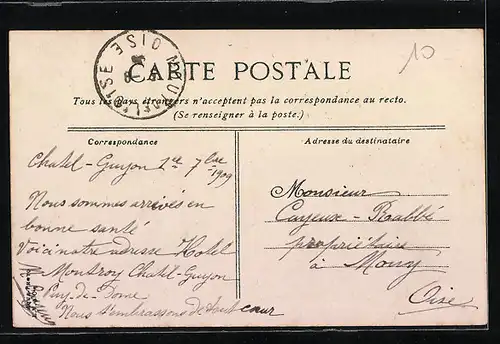 10
CARTE POSTALE
Tous les pays étrangers n'acceptent pas la correspondance au recto.
(Se renseigner à la poste.)
Correspondance
Chatel-Guyon 1er 7bre 1909
Nous sommes arrivés en
bonne santé
Voici notre adresse Hotel
Montroy Chatel-Guyon
Puy-de-Dome
Nous t'embrassons de tout cœur
Adresse du destinataire
Monsieur
Cayeux-Rabbé
propriétaire
à Mouy
Oise